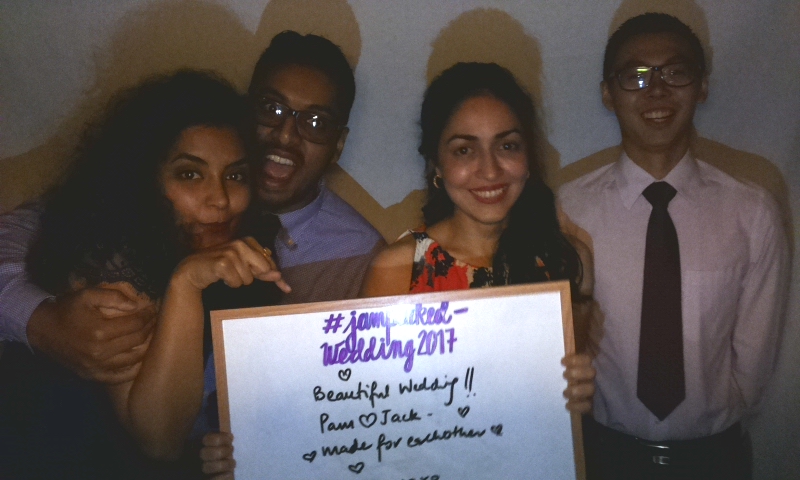 #jampacked-
Wedding2017
Beautiful Wedding!!
Pam ♡ Jack -
made for eachother